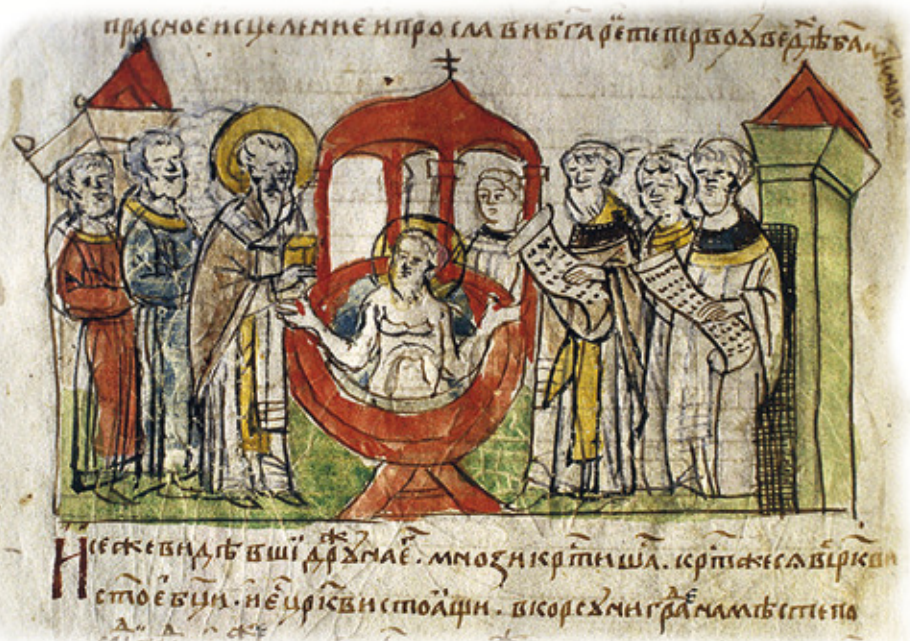 прасное исцеление и прослави бг҃а рⷱ҇е те перво ꙋведѣ ба҃
И се же видѣвши дрꙋжⷤина е҃. мнози кр҃тиша. кр҃т же ся в цр҃кви
ст҃ое бц҃и. и е҃ цр҃кви стоащи. в корсꙋни граⷣ на мѣсте по